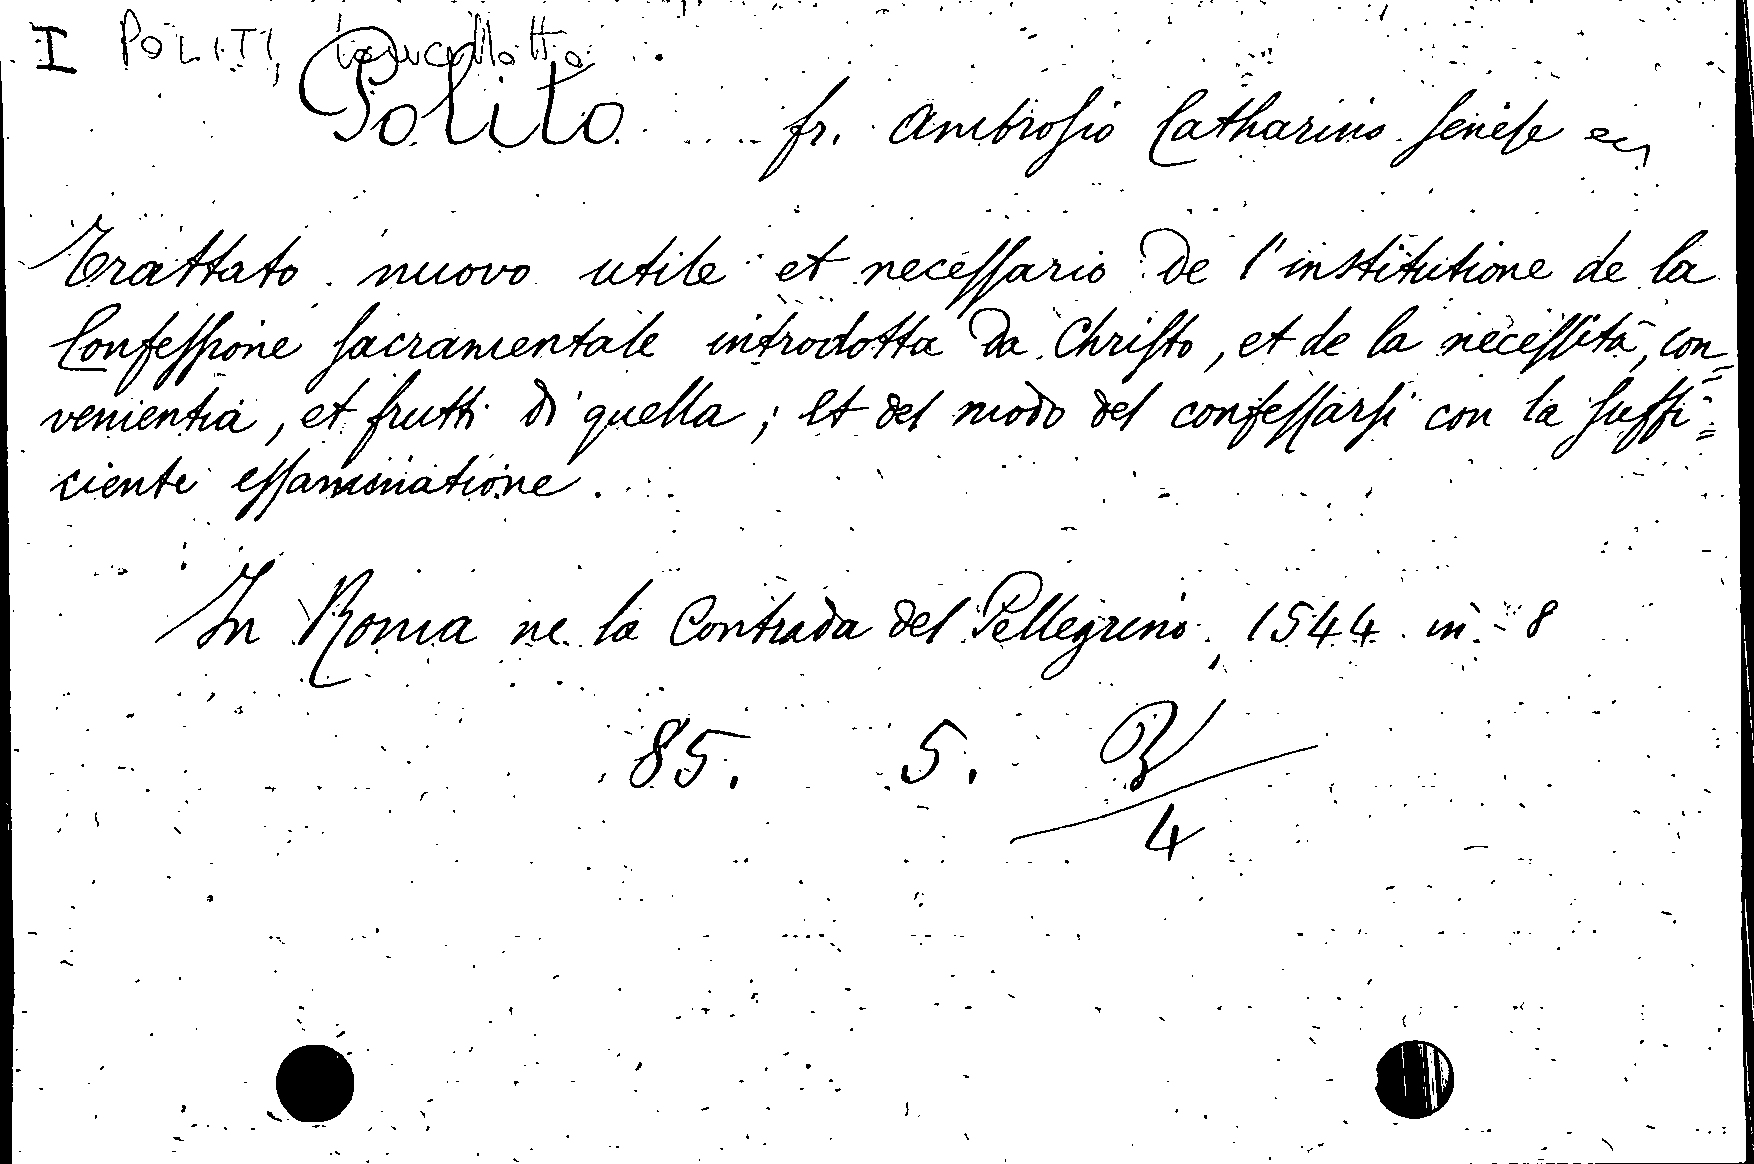 I POLITI, Lancellotto
Polito fr. Ambrosio Catharino Senese
Trattato nuovo utile et necessario de l'institutione de la
Confessione sacramentale introdotta da Christo, et de la necessità, con=
venientia, et frutti di quella; Et del modo del confessarsi con la suffi=
ciente essaminatione.
In Roma ne la Contrada del Pellegrino, 1544 in 8
85. 5.
4